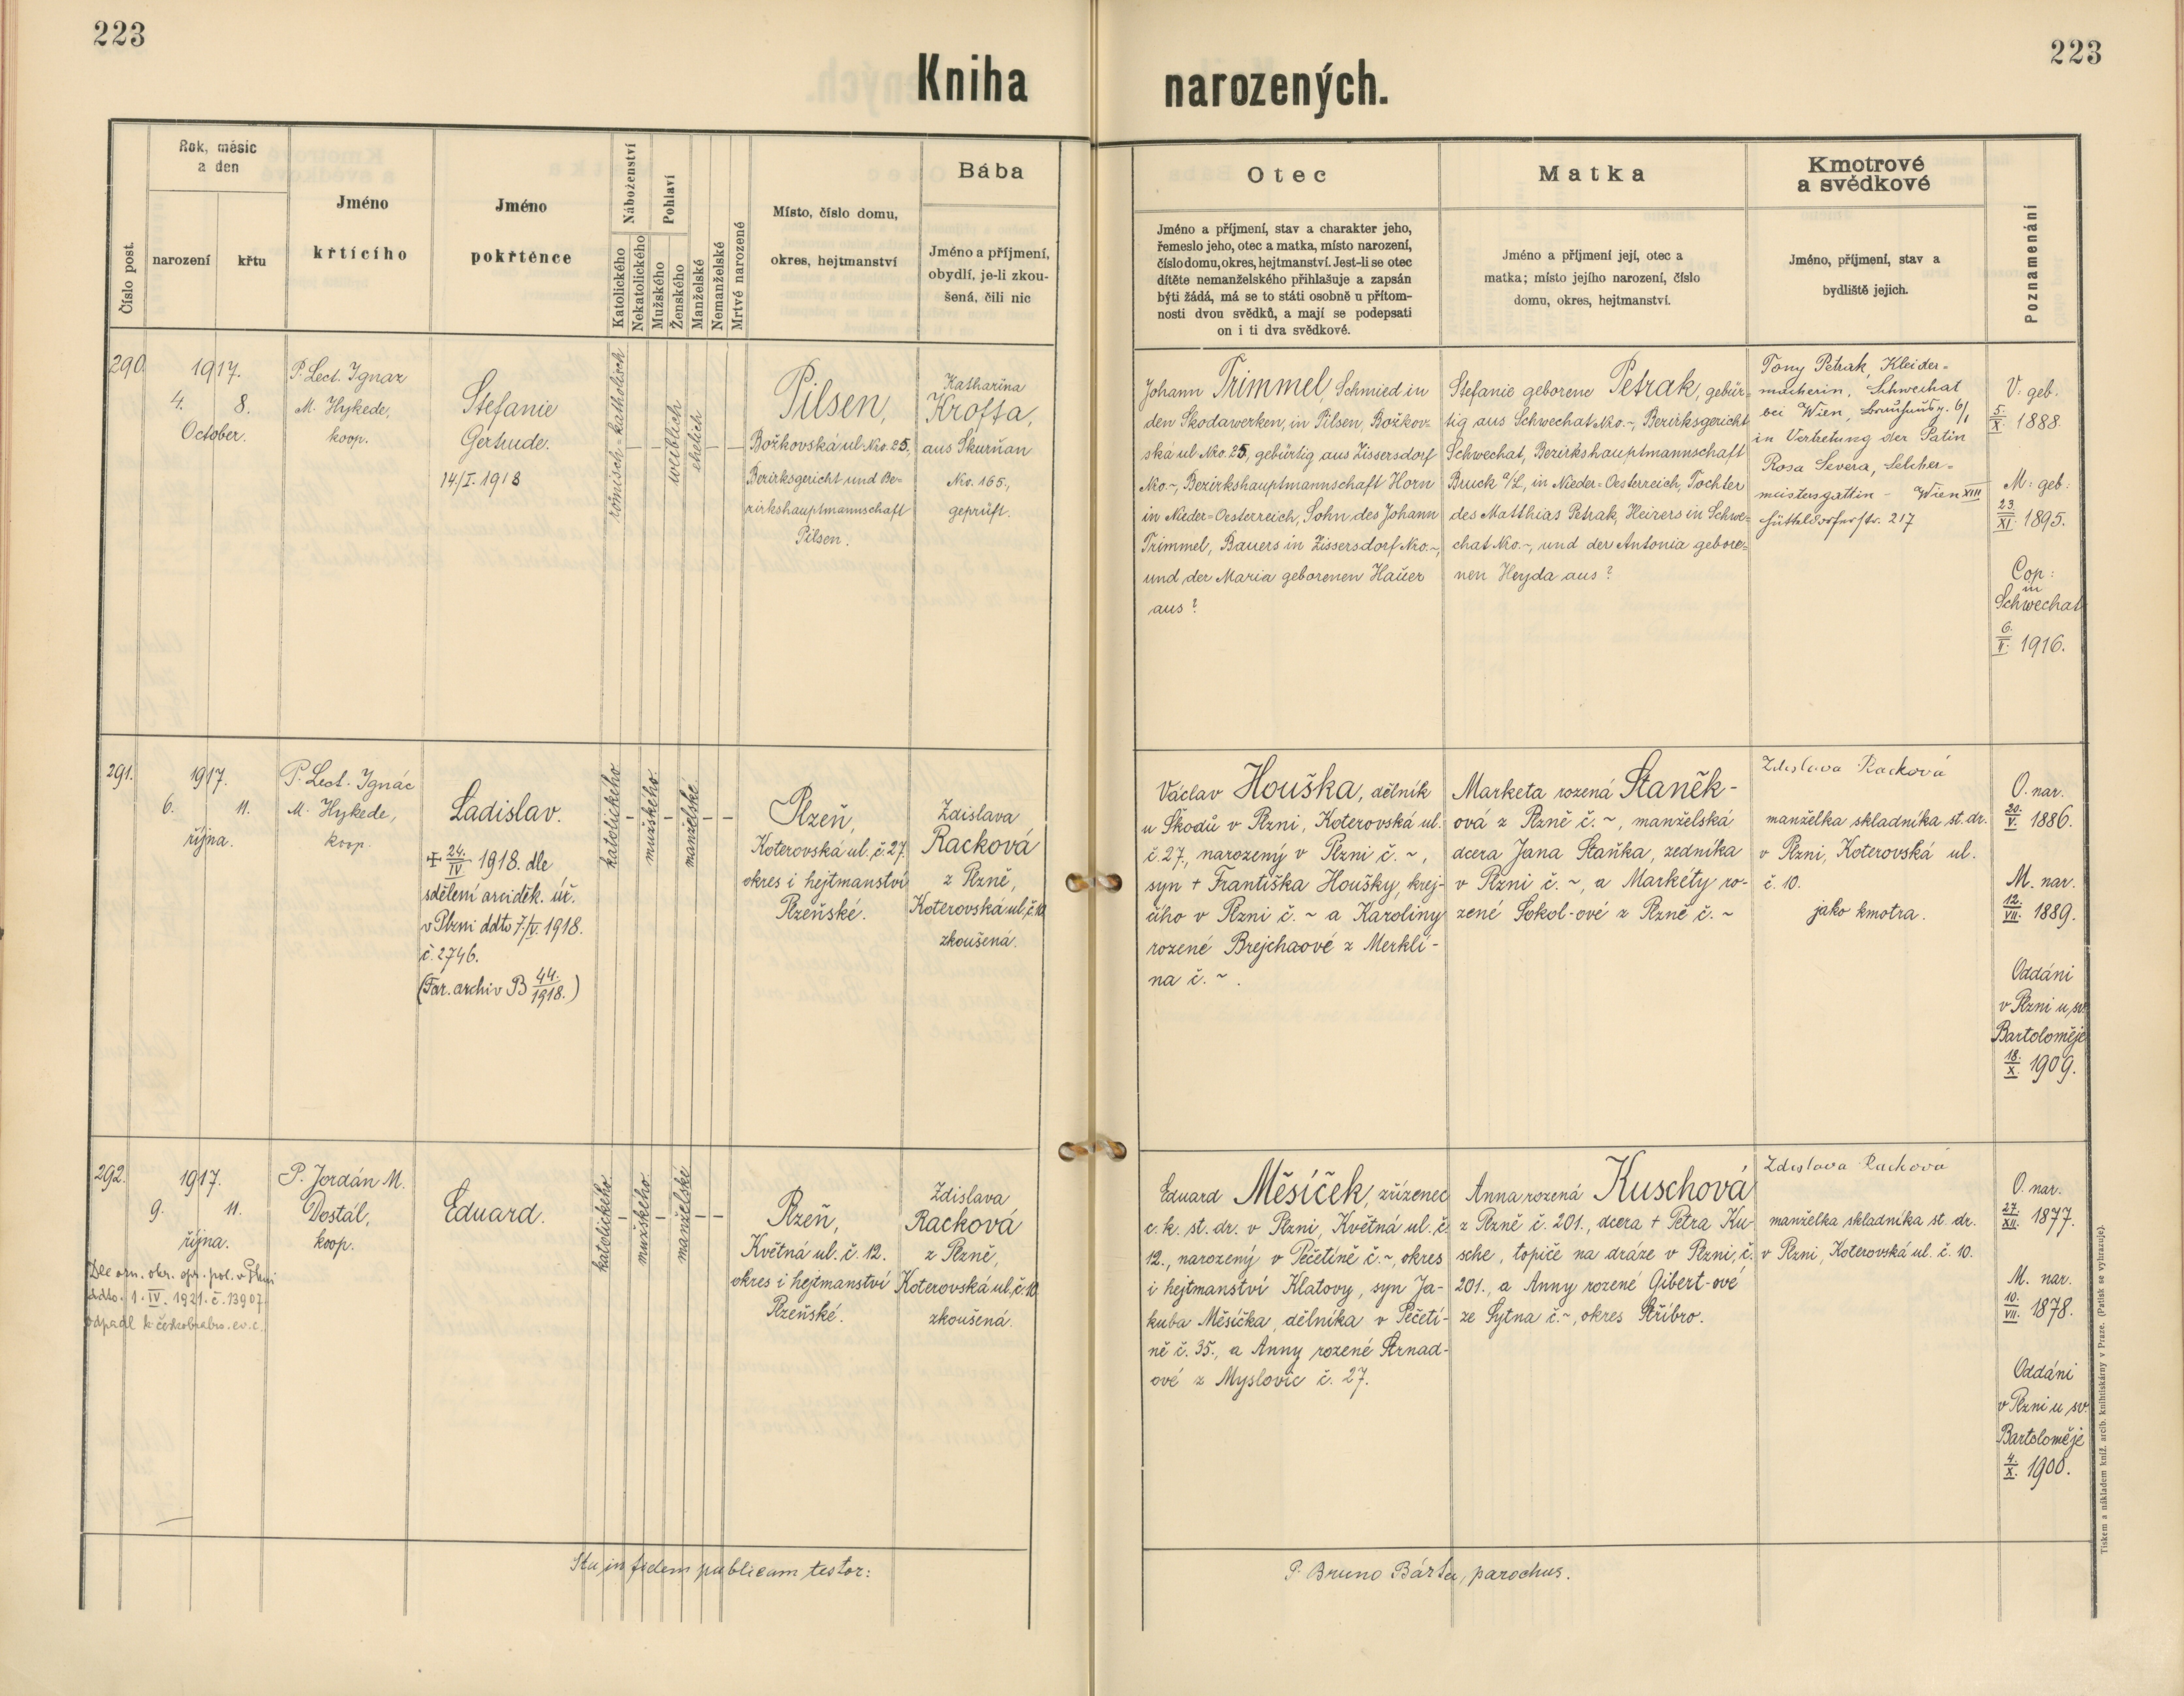 223
223
Kniha narozených.
Číslo post.
Rok, měsíc
a den
narození
křtu
Jméno
křtícího
Jméno
pokřtěnce
Náboženství
Katolického
Nekatolického
Pohlaví
Mužského
Ženského
Manželské
Nemanželské
Mrtvě narozené
Místo, číslo domu,
okres, hejtmanství
Bába
Jméno a příjmení,
obydlí, je-li zkou-
šená, čili nic
Otec
Jméno a příjmení, stav a charakter jeho,
řemeslo jeho, otec a matka, místo narození,
číslo domu, okres, hejtmanství. Jest-li se otec
dítěte nemanželského přihlašuje a zapsán
býti žádá, má se to státi osobně u přítom-
nosti dvou svědků, a mají se podepsati
on i ti dva svědkové.
Matka
Jméno a příjmení její, otec a
matka; místo jejího narození, číslo
domu, okres, hejtmanství.
Kmotrové
a svědkové
Jméno, příjmení, stav a
bydliště jejich.
Poznamenání
290
1917.
4. 8.
October.
P. Lect. Ignaz
M. Hykede,
koop.
Stefanie
Gertrude.
14/I. 1918
römisch-katholisch
–
–
weiblich
ehelich
–
–
Pilsen,
Božkovská ul. Nro. 25.
Bezirksgericht und Be-
zirkshauptmannschaft
Pilsen.
Katharina
Krofta,
aus Skurňan
Nro. 165.,
geprüft.
Johann Trimmel, Schmied in
den Skodawerken, in Pilsen, Božkov-
ská ul. Nro. 25, gebürtig aus Zissersdorf
Nro. ~, Bezirkshauptmannschaft Horn
in Nieder-Oesterreich, Sohn des Johann
Trimmel, Bauers in Zissersdorf Nro. ~,
und der Maria geborenen Hauer
aus ?
Stefanie geborene Petrak, gebür-
tig aus Schwechat Nro. ~, Bezirksgericht
Schwechat, Bezirkshauptmannschaft
Bruck a/L, in Nieder-Oesterreich, Tochter
des Matthias Petrak, Heizers in Schwe-
chat Nro. ~, und der Antonia gebore-
nen Heyda aus ?
Tony Petrak, Kleider-
macherin, Schwechat
bei Wien, 6/1
in Vertretung der Patin
Rosa Severa, Selcher-
meistersgattin - Wien XIII
Hütteldorferstr. 217
V. geb.
5./X. 1888.
M. geb:
23./XI. 1895.
Cop:
in
Schwechat
6./II. 1916.
291.
1917.
6. 11.
října.
P. Lect. Ignác
M. Hykede,
koop.
Ladislav.
+ 24./IV 1918. dle
sdělení arciděk. úř.
v Plzni ddto 7./V. 1918.
č. 2746.
(Far. archiv B 44./1918.)
katolického
–
mužského.
–
manželské.
–
–
Plzeň,
Koterovská ul., č. 27.
okres i hejtmanství
Plzeňské.
Zdislava
Racková
z Plzně,
Koterovská ul., č. 10
zkoušená.
Václav Houška, dělník
u Škodů v Plzni, Koterovská ul.
č. 27., narozený v Plzni č. ~,
syn + Františka Houšky, krej-
čího v Plzni č. ~ a Karoliny
rozené Brejchaové z Merklí-
na č. ~ .
Marketa rozená Staněk-
ová z Plzně č. ~, manželská
dcera Jana Staňka, zedníka
v Plzni č. ~, a Markéty ro-
zené Sokol-ové z Plzně č. ~
Zdislava Racková
manželka skladníka st. dr.
v Plzni, Koterovská ul.
č. 10.
jako kmotra.
O. nar.
20./V. 1886.
M. nar.
12./VII. 1889.
Oddáni
v Plzni u sv.
Bartoloměje
18./X. 1909.
292.
1917.
9. 11.
října.
Dle ozn. okr. spr. pol. v Plzni
ddto. 1. IV. 1921. č. 13907
odpadl k českobratrs. ev. c.
P. Jordán M.
Dostál,
koop.
Eduard.
katolického.
–
mužského.
–
manželské
–
–
Plzeň,
Květná ul. č. 12.
okres i hejtmanství
Plzeňské.
Zdislava
Racková
z Plzně,
Koterovská ul., č. 10
zkoušená.
Eduard Měsíček, zřízenec
c. k. st. dr. v Plzni, Květná ul. č.
12., narozený v Pečetíně č. ~, okres
i hejtmanství Klatovy, syn Ja-
kuba Měsíčka, dělníka v Pečetí-
ně č. 35., a Anny rozené Strnad-
ové z Myslovic č. 27.
Anna rozená Kuschová
z Plzně č. 201., dcera + Petra Ku-
sche, topiče na dráze v Plzni, č.
201., a Anny rozené Gibert-ové
ze Sytna č. ~, okres Stříbro.
Zdislava Racková
manželka skladníka st. dr.
v Plzni, Koterovská ul. č. 10.
O. nar.
27./XII. 1877.
M. nar.
10./VII. 1878.
Oddáni
v Plzni u sv.
Bartoloměje
4./X. 1900.
Ita in fidem publicam testor:
P. Bruno Bárta, parochus.
Tiskem a nákladem kníž. arcib. knihtiskárny v Praze. (Patisk se vyhrazuje).